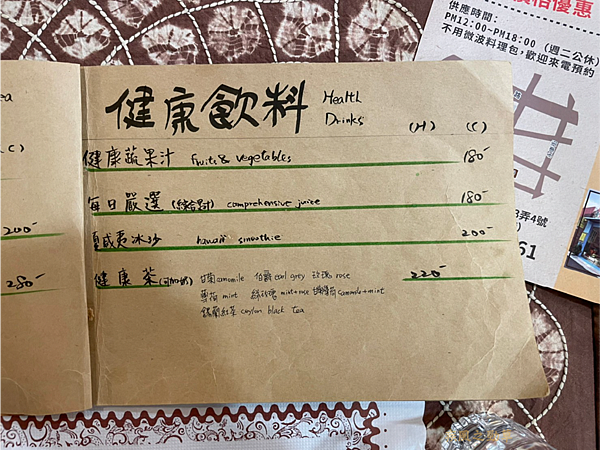 健康飲料 Health Drinks (H) (C)
健康蔬果汁 fruits & vegetables 180-
每日嚴選(綜合果汁) comprehensive juice 180-
夏威夷冰沙 hawaii smoothie 200-
健康茶(可加奶) 220-
甘菊 camomile 伯爵 earl grey 玫瑰 rose
薄荷 mint mint+rose camomile+mint
錫蘭紅茶 ceylon black tea
(C)
200-
280-
價格優惠
供應時間:
PM12:00~PM18:00 (週二公休)
不用微波料理包,歡迎來電預約
弄4號
61